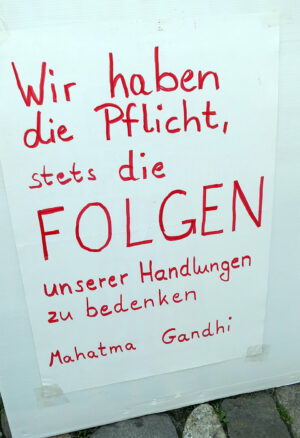 Wir haben
die Pflicht,
stets die
FOLGEN
unserer Handlungen
zu bedenken
Mahatma Gandhi